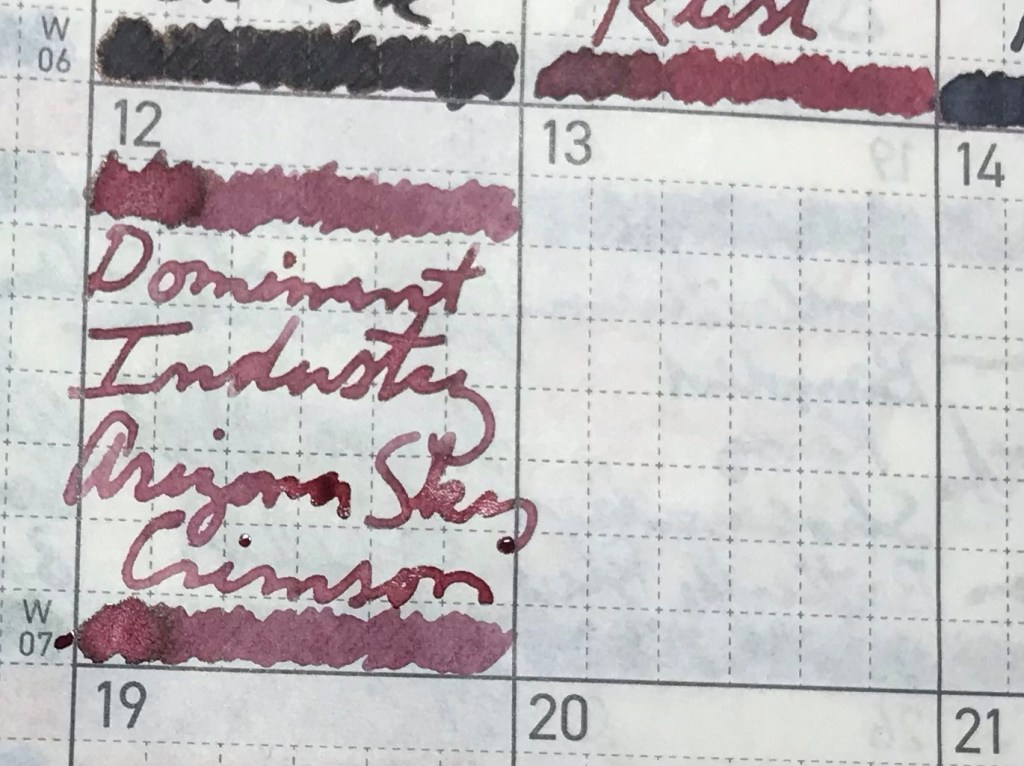 W
06
Rust
12
13
14
Dominant
Industry
Arizona Sky
Crimson
W
07
19
20
21